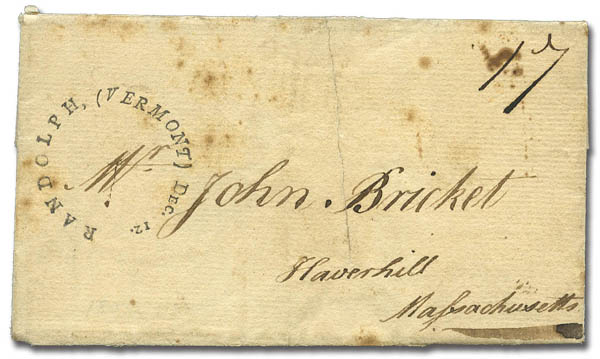 17
RANDOLPH, (VERMONT) DEC. 12.
Mr. John Bricket
Haverhill
Maſsachusetts